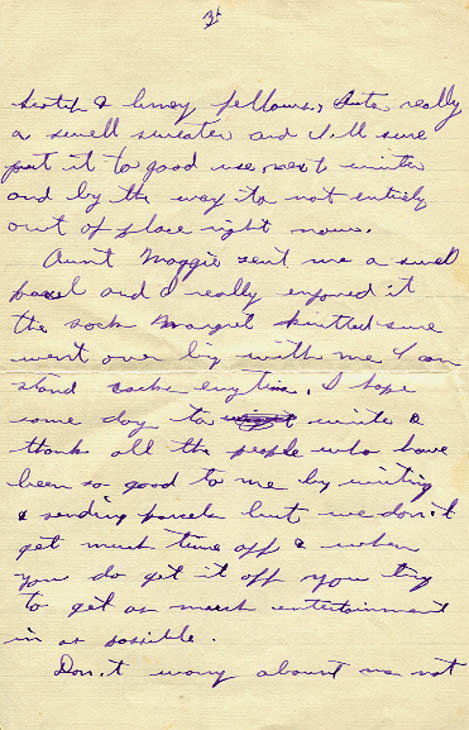 3
scotch & limey fellows, Its really
a swell sweater and I.ll sure
put it to good use next winter
and by the way its not entirely
out of place right now.
Aunt Maggie sent me a swell
parcel and I really enjoyed it
the sock Margret knitted sure
went over big with me I can
stand socks anytime. I hope
some day to write &
thank all the people who have
been so good to me by writing
& sending parcels but we don.t
get much time off & when
you do get it off you try
to get as much entertainment
in as possible.
Don.t worry about me not